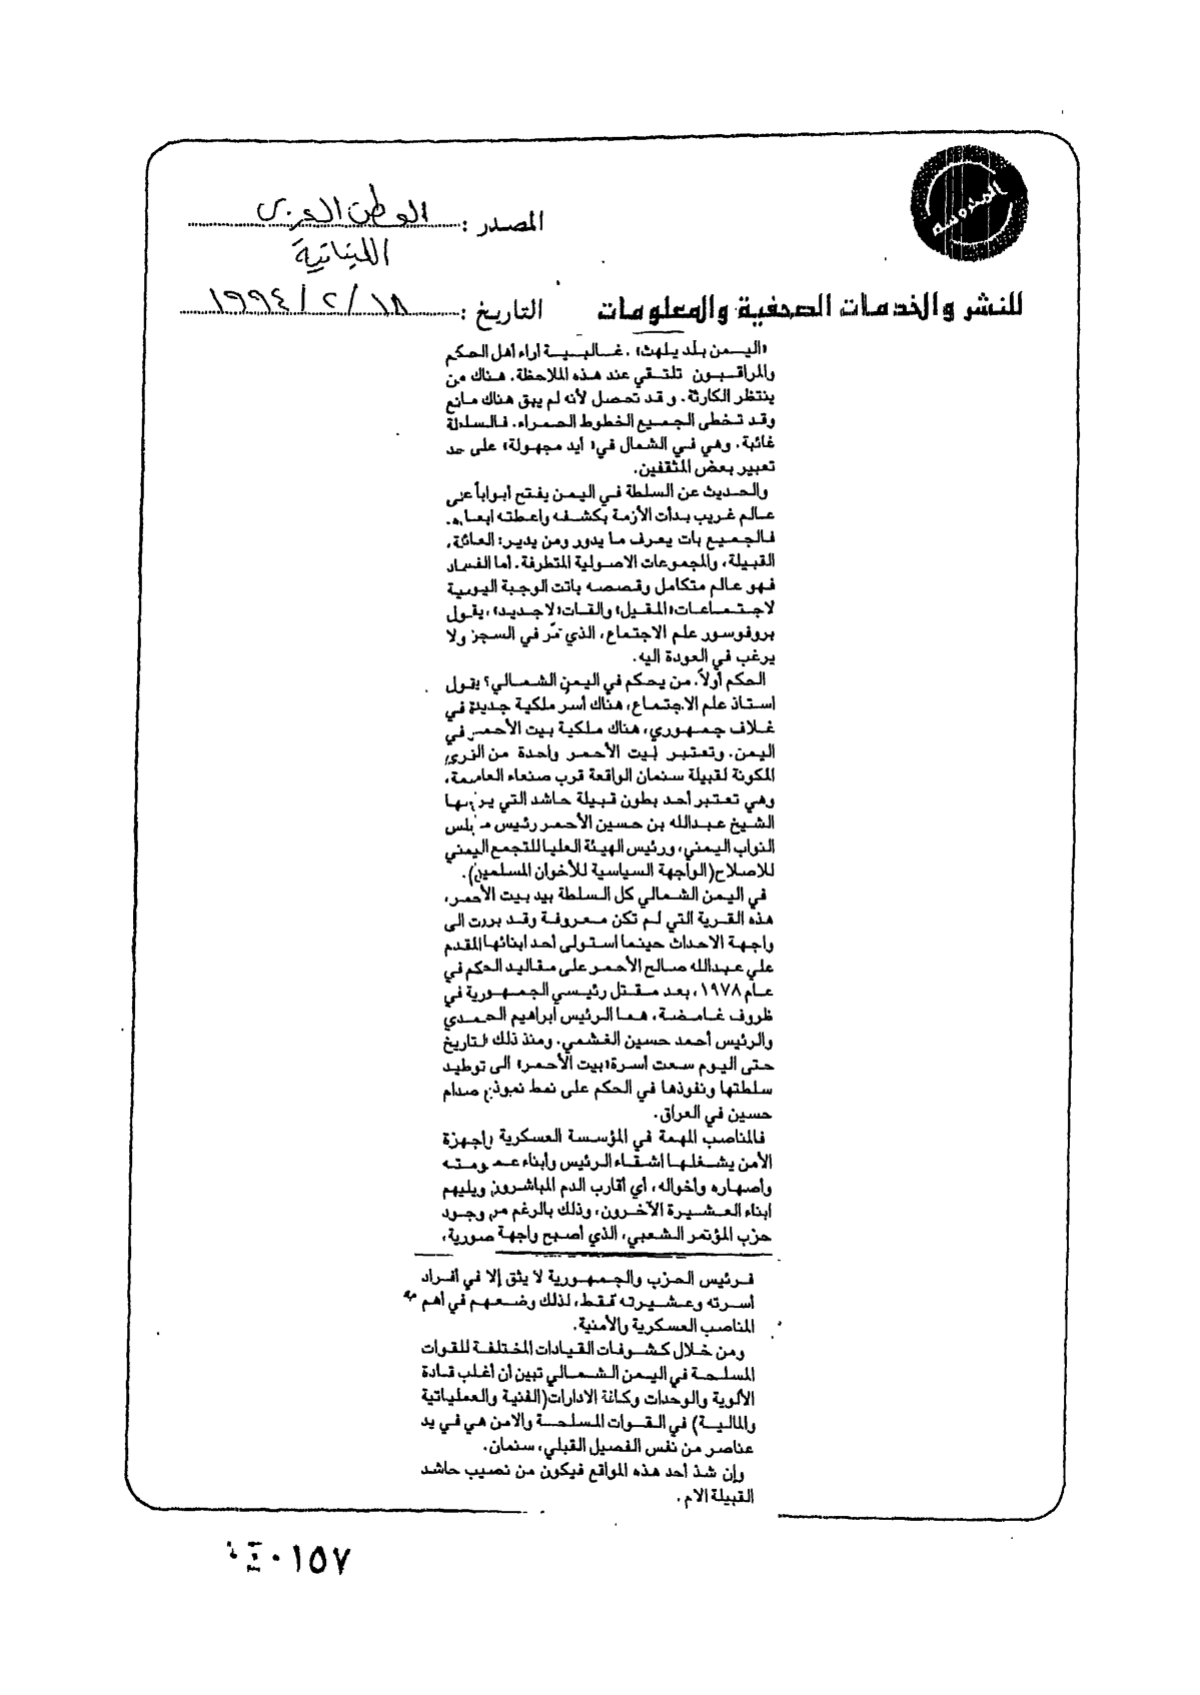 المحروسة
المصدر : الوطن العربي
اللبنانية
للنشر والخدمات الصحفية والمعلومات
التاريخ : ١٩٩٤/٢/١٨
«اليمن بلد يلهث» . غالبية آراء أهل الحكم
والمراقبون تلتقي عند هذه الملاحظة . هناك من
ينتظر الكارثة . وقد تحصل لأنه لم يبق هناك مانع
وقد تخطى الجميع الخطوط الحمراء . فالسلطة
غائبة . وهي في الشمال في «أيد مجهولة» على حد
تعبير بعض المثقفين .
والحديث عن السلطة في اليمن يفتح أبواباً على
عالم غريب بدأت الأزمة بكشفه وإعطته ابعاده .
فالجميع بات يعرف ما يدور ومن يدير : العائلة ،
القبيلة ، والمجموعات الاصولية المتطرفة . أما الفساد
فهو عالم متكامل وقصصه باتت الوجبة اليومية
لاجتماعات «المقيل» والقات «لا جديد» ، يقول
بروفوسور علم الاجتماع ، الذي مّر في السجن ولا
يرغب في العودة اليه .
الحكم أولاً . من يحكم في اليمن الشمالي؟ يقول
استاذ علم الاجتماع ، هناك أسر ملكية جديدة في
غلاف جمهوري ، هناك ملكية بيت الأحمر في
اليمن . وتعتبر بيت الأحمر واحدة من القرى
المكونة لقبيلة سنمان الواقعة قرب صنعاء العاصمة ،
وهي تعتبر أحد بطون قبيلة حاشد التي
الشيخ عبدالله بن حسين الأحمر رئيس مجلس
النواب اليمني ، ورئيس الهيئة العليا للتجمع اليمني
للاصلاح (الواجهة السياسية للأخوان المسلمين) .
في اليمن الشمالي كل السلطة بيد بيت الأحمر ،
هذه القرية التي لم تكن معروفة وقد برزت الى
واجهة الاحداث حينما استولى أحد ابنائها المقدم
علي عبدالله صالح الأحمر على مقاليد الحكم في
عام ١٩٧٨ ، بعد مقتل رئيسي الجمهورية في
ظروف غامضة ، هما الرئيس ابراهيم الحمدي
والرئيس أحمد حسين الغشمي . ومنذ ذلك التاريخ
حتى اليوم سعت أسرة «بيت الأحمر» الى توطيد
سلطتها ونفوذها في الحكم على نمط نموذج صدام
حسين في العراق .
فالمناصب المهمة في المؤسسة العسكرية وأجهزة
الأمن يشغلها اشقاء الرئيس وأبناء عمومته
وأصهاره وأخواله ، أي أقارب الدم المباشرون ويليهم
ابناء العشيرة الآخرون ، وذلك بالرغم من وجود
حزب المؤتمر الشعبي ، الذي أصبح واجهة صورية ،
فرئيس الحزب والجمهورية لا يثق إلا في أفراد
أسرته وعشيرته فقط ، لذلك وضعهم في أهم
المناصب العسكرية والأمنية .
ومن خلال كشوفات القيادات المختلفة للقوات
المسلحة في اليمن الشمالي تبين أن أغلب قادة
الألوية والوحدات وكافة الادارات (الفنية والعملياتية
والمالية) في القوات المسلحة والامن هي في يد
عناصر من نفس الفصيل القبلي ، سنمان .
وإن شذ أحد هذه المواقع فيكون من نصيب حاشد
القبيلة الام .
٠١٥٧